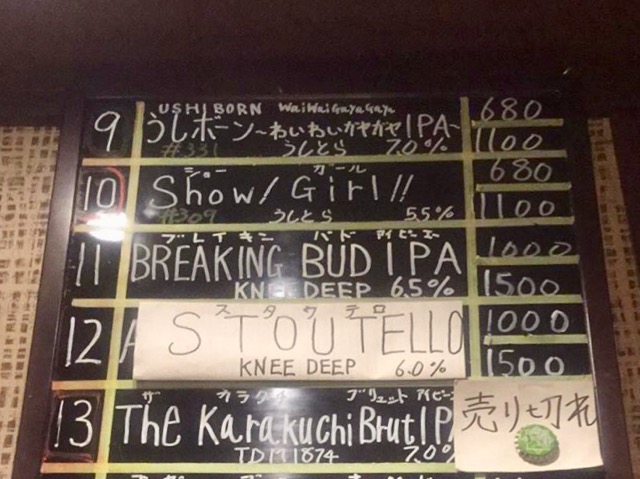 USHI BORN WaiWaiGayaGaya
9 うしボーン〜わいわいガヤガヤIPA〜 680
#331 うしとら 7.0% 1100
ショー ガール
10 Show/Girl!! 680
#309 うしとら 5.5% 1100
ブレイキン バド アイピーエー
11 BREAKING BUD IPA 1000
KNEE DEEP 6.5% 1500
スタウテロ
12 STOUTELLO 1000
KNEE DEEP 6.0% 1500
ザ カラクチ ブリュット アイピー
13 The Karakuchi Brut IPA 売り切れ
TDM1874 7.0%